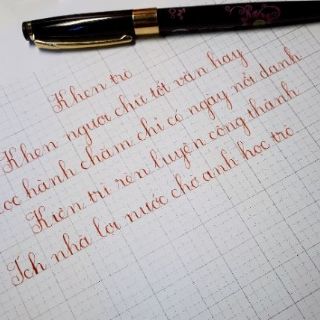 Khen trò
Khen người chữ tốt văn hay
Học hành chăm chỉ có ngày nổi danh
Kiên trì rèn luyện công thành
Ích nhà lợi nước chờ anh học trò